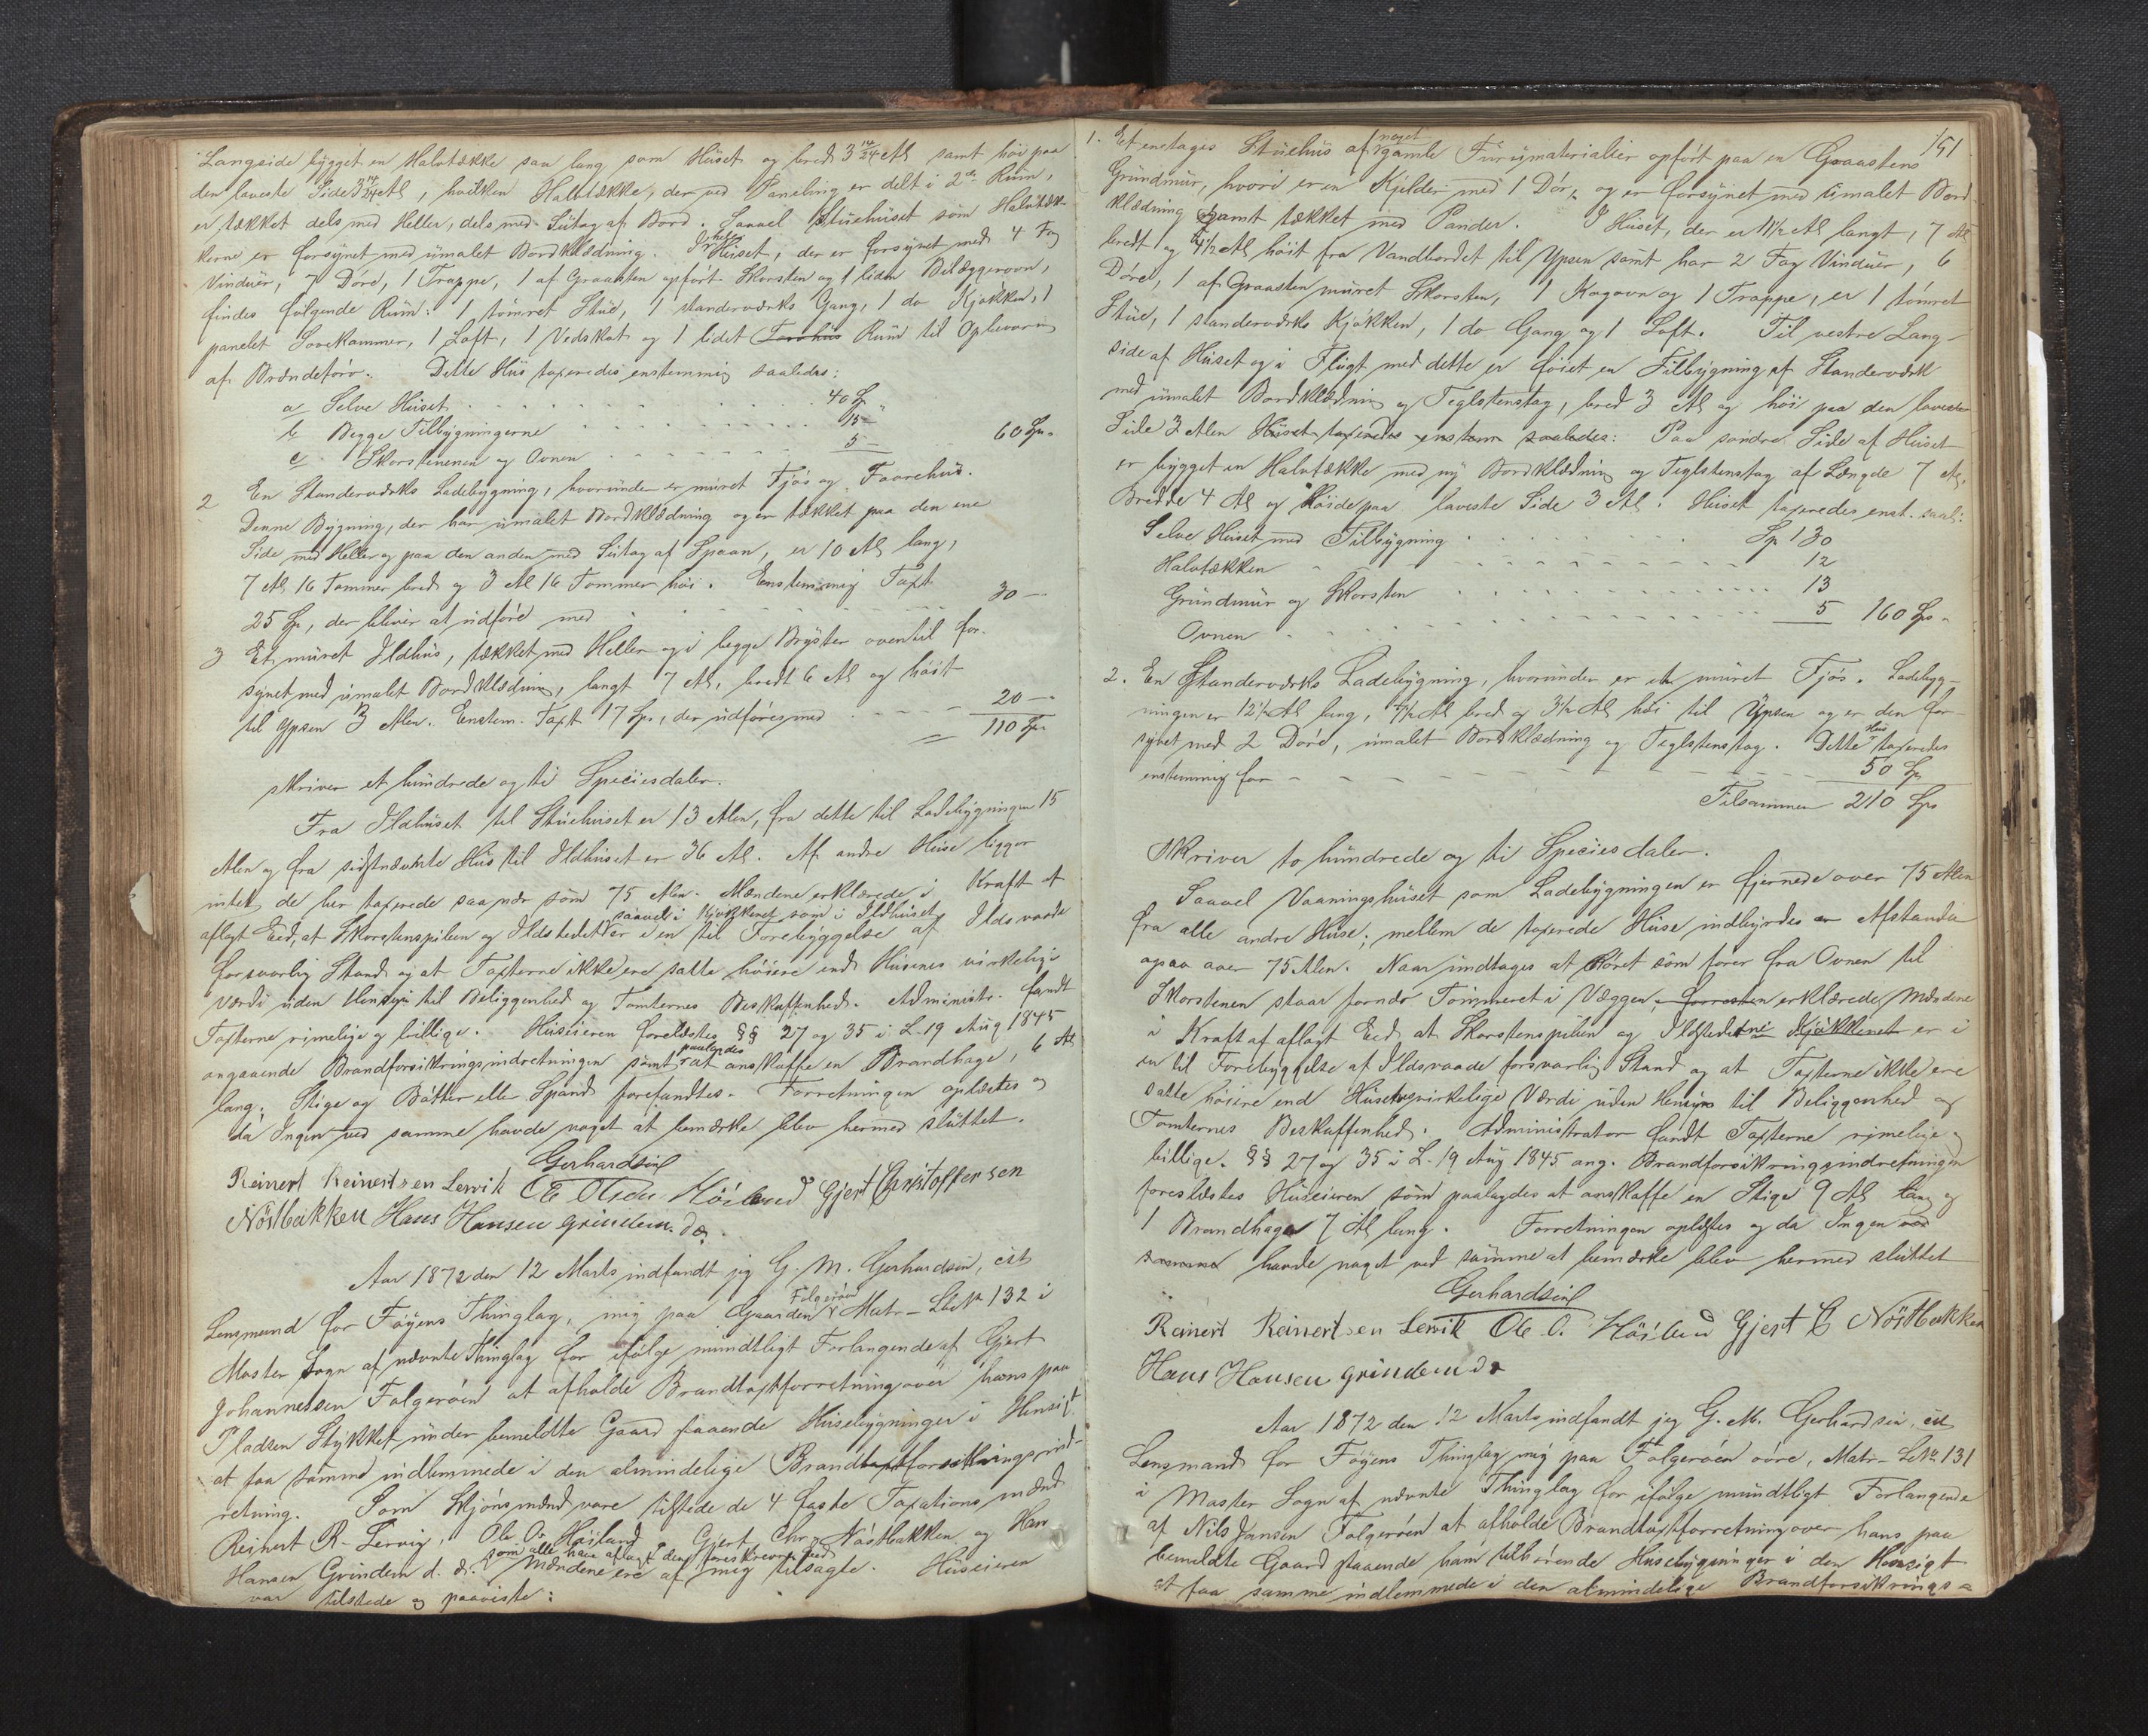 Langside bygget en Halvtække saa lang som Huset og bred 3 14/24 Al samt höi paa
den laveste Side 3 14/24 Al, hvilken Halvtække, der ved Paneling er delt i 2de Rum,
er tækket dels med Heller, dels med Sutag af Bord. Saavel Stuehuset som Halvtæk-
kerne er forsynet med umalet Bordklædning. I hele Huset, der er forsynet med 4 Fag
Vinduer, 7 Döre, 1 Trappe, 1 af Graasten opfört Skorsten og 1 liden Belæggerovn,
findes fölgende Rum: 1 tömret Stue, 1 standerværks Gang, 1 do Kjökken, 1
panelet Sovekammer, 1 Loft, 1 Vedskot og 1 lidet Torvhus Rum til Opbevaring
af Brændetörv. Dette Hus taxeredes enstemmig saaledes:
a Selve Huset 40 Sp
b Begge Tilbygningerne 15 —
c Skorstenenen og Ovnen 5 — 60 Spd.
2 En Standerværks Ladebygning, hvorunder er muret Fjös og Faarehus.
Denne Bygning, der har umalet Bordklædning og er tækket paa den ene
Side med Heller og paa den anden med Sutag af Spaan, er 10 Al lang,
7 Al 16 Tommer bred og 3 Al 16 Tommer höi. Enstemmig Taxt
25 Sp, der bliver at udföre med 30 —
3 Et muret Ildhus, tækket med Heller og i begge Bryster oventil for-
synet med umalet Bordklædning, langt 7 Al, bredt 6 Al og höit
til Ypsen 3 Alen. Enstem. Taxt 17 Sp, der udföres med 20 —
110 Sp
skriver et hundrede og ti Speciesdaler.
Fra Ildhuset til Stuehuset er 13 Alen, fra dette til Ladebygningen 15
Alen og fra sidstnævnte Hus til Ildhuset er 36 Al. Af andre Huse ligger
intet de her taxerede saa nær som 75 Alen. Mændene erklærede i Kraft af
aflagt Eed, at Skorstenspiben og Ildstedet saavel i Kjökkenet som i Ildhuset er i en til Forebyggelse af Ildsvaade
forsvarlig Stand og at Taxterne ikke ere satte höiere end Husenes virkelige
Værdi uden Hensyn til Beliggenhed og Tomternes Beskaffenhed. Administr. fandt
Taxterne rimelige og billige. Huseieren forelæstes §§ 27 og 35 i L. 19 Aug 1845
angaaende Brandforsikringsindretningen samt paalagdes at anskaffe en Brandhage, 6 Al
lang; Stige og Bötter eller Spand forefandtes. Forretningen oplæstes og
da Ingen ved samme havde noget at bemærke blev hermed sluttet.
Gerhardsen
Reinert Reinertsen Lervik Ole Olsen Höiland Gjert Christoffersen
Nöstbakken Hans Hansen Grindem. d.æ.
Aar 1872 den 12 Marts indfandt jeg G. M. Gerhardsen, cst
Lensmand for Föyens Thinglag, mig paa Gaarden Folgeröen Matr-LNo 132 i
Moster Sogn af nævnte Thinglag for ifölge mundtligt Forlangende af Gjert
Johannessen Folgeröen at afholde Brandtaxtforretning over hans paa
Pladsen Stykket under bemeldte Gaard staaende Husebygninger i Hensigt
at faa samme indlemmede i den almindelige Brandtaxtforsikringsind-
retning. Som Skjönsmænd vare tilstede de 4 faste Taxationsmænd
Reinert R. Lervig, Ole O. Höiland, Gjert Chr. Nöstbakken og Hans
Hansen Grindem d. æ. som alle have aflagt den foreskrevne Eed Mændene ere af mig tilsagte. Huseieren
var tilstede og paaviste:
151
1. Et enetages Stuehus af noget gamle Furumaterialier opfört paa en Graastens
Grundmur, hvori er en Kjelder med 1 Dör, og er forsynet med umalet Bord-
klædning samt tækket med Pander. I Huset, der er 11 1/2 Al langt, 7 Al
bredt og 4 1/2 Al höit fra Vandbordet til Ypsen samt har 2 Fag Vinduer, 6
Döre, 1 af Graasten muret Skorsten, 1 Kogovn og 1 Trappe, er 1 tömret
Stue, 1 standerværks Kjökken, 1 do Gang og 1 Loft. Til vestre Lang-
side af Huset og i Flugt med dette er föiet en Tilbygning af Standerværk
med umalet Bordklædning og Teglstenstag, bred 3 Al og höi paa den laveste
Side 3 Alen Huset taxeredes enstem saaledes: Paa söndre Side af Huset
er bygget en Halvtække med ny Bordklædning og Teglstenstag af Længde 7 Al,
Bredde 4 Al og Höide paa laveste Side 3 Al. Huset taxeredes enst. saal:
Selve Huset med Tilbygning Sp 130
Halvtækken 12
Grundmur og Skorsten 13
Ovnen 5 160 Sp
2. En Standerværks Ladebygning, hvorunder er et muret Fjös. Ladebyg-
ningen er 12 1/2 Al lang, 7 1/2 Al bred og 3 1/2 Al höi til Ypsen og er den for-
synet med 2 Döre, umalet Bordklædning og Teglstenstag. Dette Hus taxeredes
enstemmig for 50 Sp
Tilsammen 210 Spd
Skriver to hundrede og ti Speciesdaler.
Saavel Vaaningshuset som Ladebygningen er fjernede over 75 Alen
fra alle andre Huse; mellem de taxerede Huse indbyrdes er Afstanden
ogsaa over 75 Alen. Naar undtages at Röret som förer fra Ovnen til
Skorstenen staar fornær Tömmeret i Væggen, forresten erklærede Mændene
i Kraft af aflagt Eed at Skorstenspiben og Ildstedet i Kjökkenet er i
en til Forebyggelse af Ildsvaade forsvarlig Stand og at Taxterne ikke ere
satte höiere end Husenes virkelige Værdi uden Hensyn til Beliggenhed og
Tomternes Beskaffenhed. Administrator fandt Taxterne rimelige og
billige. §§ 27 og 35 i L. 19 Aug 1845 ang. Brandforsikringsindretningen
forelæstes Huseieren som paalagdes at anskaffe en Stige 9 Al lang og
1 Brandhage 7 Al lang. Forretningen oplæstes og da Ingen ved
samme havde noget ved samme at bemærke blev hermed sluttet
Gerhardsen
Reinert Reinertsen Lervik Ole O. Höiland Gjert C Nöstbakken
Hans Hansen Grindem d æ
Aar 1872 den 12 Marts indfandt jeg G. M. Gerhardsen, cst
Lensmand for Föyens Thinglag mig paa Folgeröen övre, Matr-LNo 131
i Moster Sogn af nævnte Thinglag for ifölge mundtligt Forlangende
af Nils Jansen Folgeröen at afholde Brandtaxtforretning over hans paa
bemeldte Gaard staaende ham tilhörende Husebygninger i den Hensigt
at faa samme indlemmede i den almindelige Brandforsikrings-